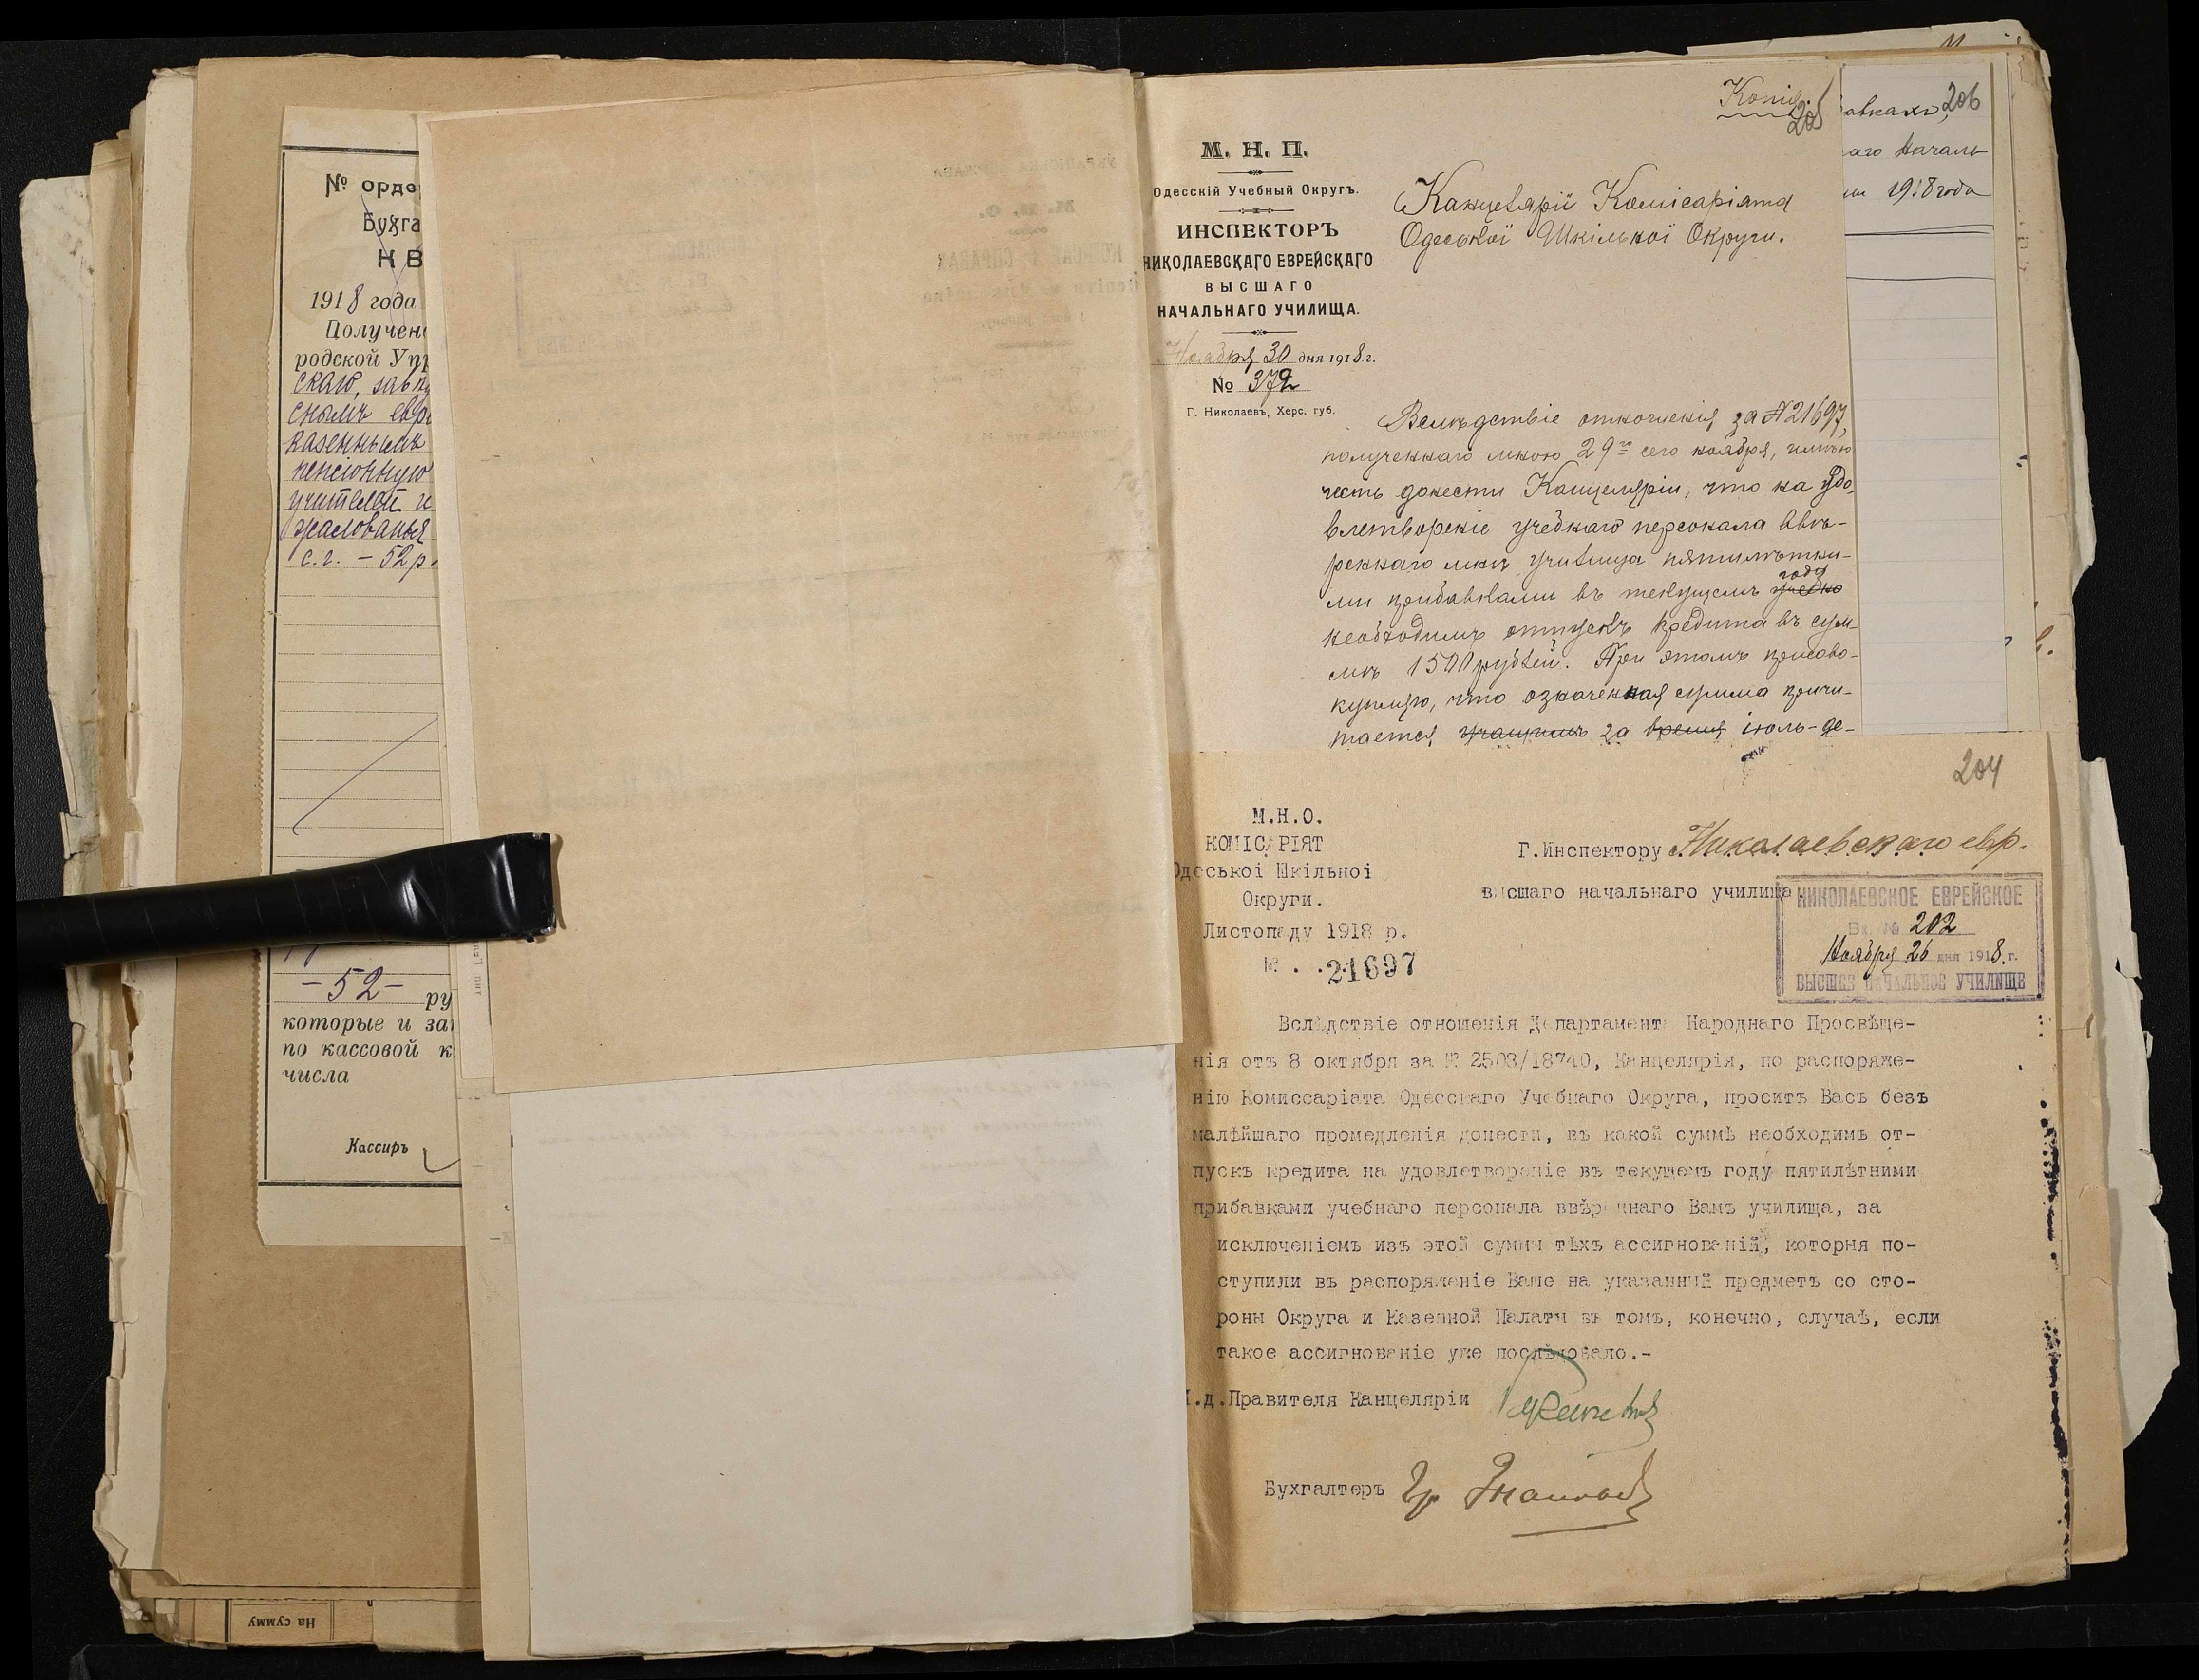 № орде
Бухга
Н В
1918 года
Получен
родской Уп
скаго, зав
снымъ евр
казеннымъ
пенсіонную
учителей и
жалованья
с.г. – 52 р.
– 52 – ру
которые и за
по кассовой к
числа
Кассиръ
На сумму
Копія.
205
М. Н. П.
Одесскій Учебный Округъ.
ИНСПЕКТОРЪ
НИКОЛАЕВСКАГО ЕВРЕЙСКАГО
ВЫСШАГО
НАЧАЛЬНАГО УЧИЛИЩА.
Ноября 30 дня 1918 г.
№ 372
Г. Николаевъ, Херс. губ.
Канцелярії Комісаріята
Одеської Шкільної Округи.
Вслѣдствіе отношенія за №21697,
полученнаго мною 29го сего ноября, имѣю
честь донести Канцеляріи, что на удо-
влетвореніе учебнаго персонала ввѣ-
реннаго мнѣ училища пятилѣтни-
ми прибавками въ текущемъ учебно году
необходимъ отпускъ кредита въ сум-
мѣ 1500 рублей. При этомъ присово-
купляю, что означенная сумма причи-
тается учащимъ за время іюль-де-
206
авкахъ,
аго Началь-
1918 года
204
М.Н.О.
КОМІСАРІЯТ
Одеської Шкільної
Округи.
Листопаду 1918 р.
№ 21697
Г.Инспектору Николаевскаго евр.
высшаго начальнаго училища
НИКОЛАЕВСКОЕ ЕВРЕЙСКОЕ
Вх. № 202
Ноября 26 дня 1918 г.
ВЫСШЕЕ НАЧАЛЬНОЕ УЧИЛИЩЕ
Вслѣдствіе отношенія Департамента Народнаго Просвѣще-
нія отъ 8 октября за № 2508/18740, Канцелярія, по распоряже-
нію Комиссаріата Одесскаго Учебнаго Округа, проситъ Васъ безъ
малѣйшаго промедленія донести, въ какой суммѣ необходимъ от-
пускъ кредита на удовлетвореніе въ текущемъ году пятилѣтними
прибавками учебнаго персонала ввѣреннаго Вамъ училища, за
исключеніемъ изъ этой суммы тѣхъ ассигнованій, которыя по-
ступили въ распоряженіе Ваше на указанный предметъ со сто-
роны Округа и Казенной Палаты въ томъ, конечно, случаѣ, если
такое ассигнованіе уже послѣдовало.-
И.д.Правителя Канцеляріи
Бухгалтеръ